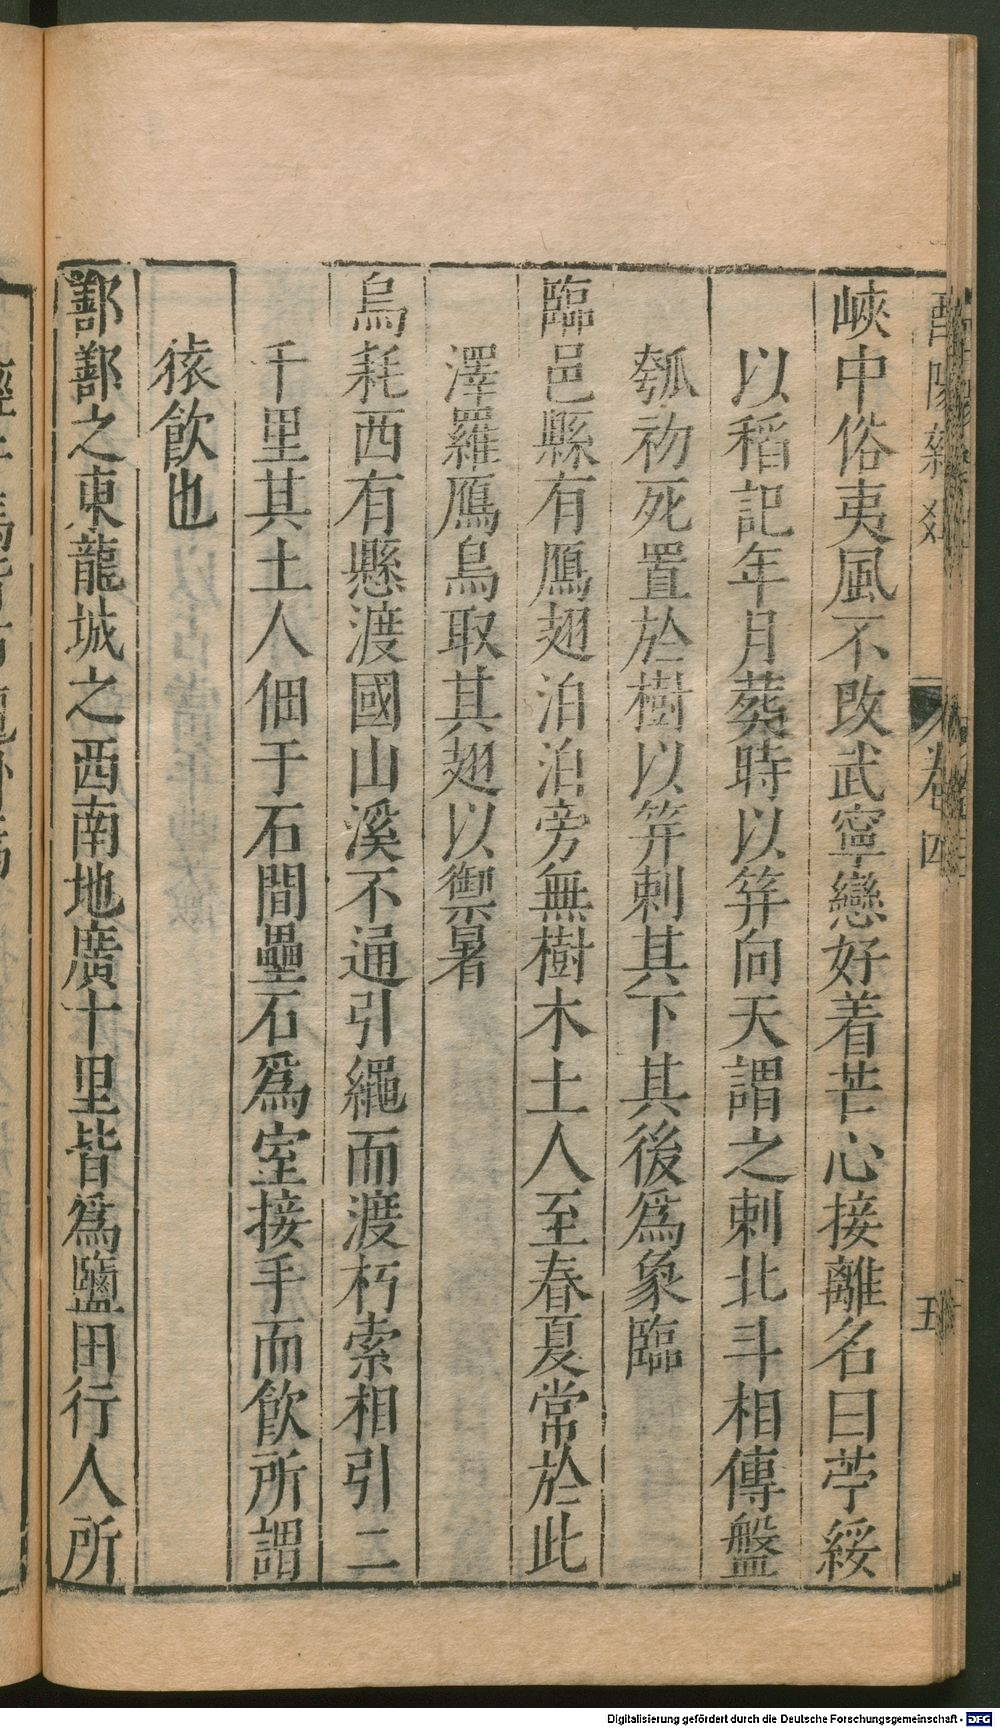 峽中俗夷風不改武寧蠻好着芒心接離名曰苧綏
以稻記年月葬時以笄向天謂之刺北斗相傳盤
瓠初死置於樹以笄刺其下其後爲象臨
臨邑縣有鴈翅泊泊旁無樹木土人至春夏常於此
澤羅鴈鳥取其翅以禦暑
烏耗西有懸渡國山溪不通引繩而渡朽索相引二
千里其土人佃于石間壘石爲室接手而飲所謂
猿飲也
鄯鄯之東龍城之西南地廣十里皆爲鹽田行人所
卷四
五
Digitalisierung gefördert durch die Deutsche Forschungsgemeinschaft - DFG